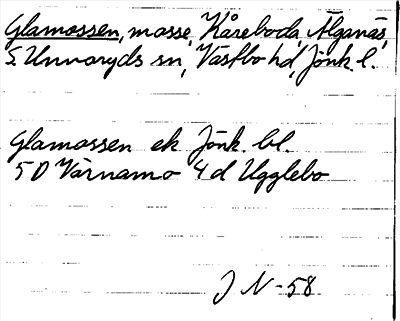 Glamossen, mosse, Kåreboda, Älganäs,
S. Unnaryds sn, Västbo hd, Jönk. l.
Glamossen ek Jönk. bl.
5 D Värnamo 4 d Ugglebo
J N -58